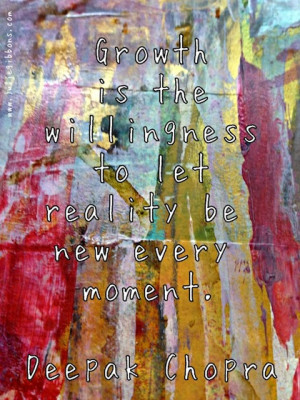 Growth
is the
willingness
to let
reality be
new every
moment.
Deepak Chopra